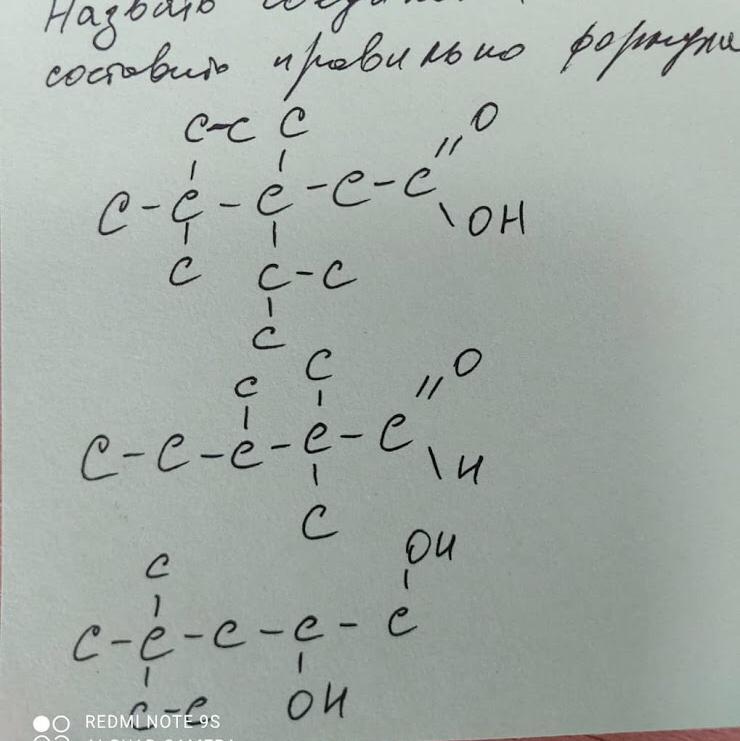 Назвать
составить правильно формулы
C-C C
C-C-C-C-C=O
\OH
C C-C
C
C C =O
C-C-C-C-C
\H
C
OH
C
C-C-C-C-C
C-C OH
REDMI NOTE 9S